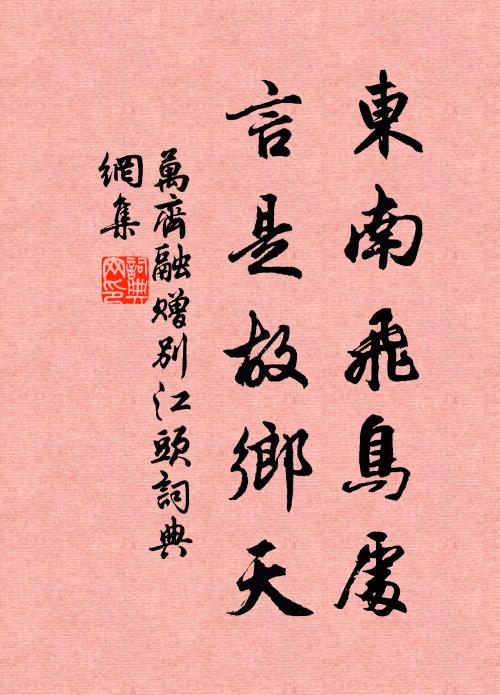 東南飛鳥處
言是故鄉天
萬齊融贈別江頭詞典
網集
詞典
网印